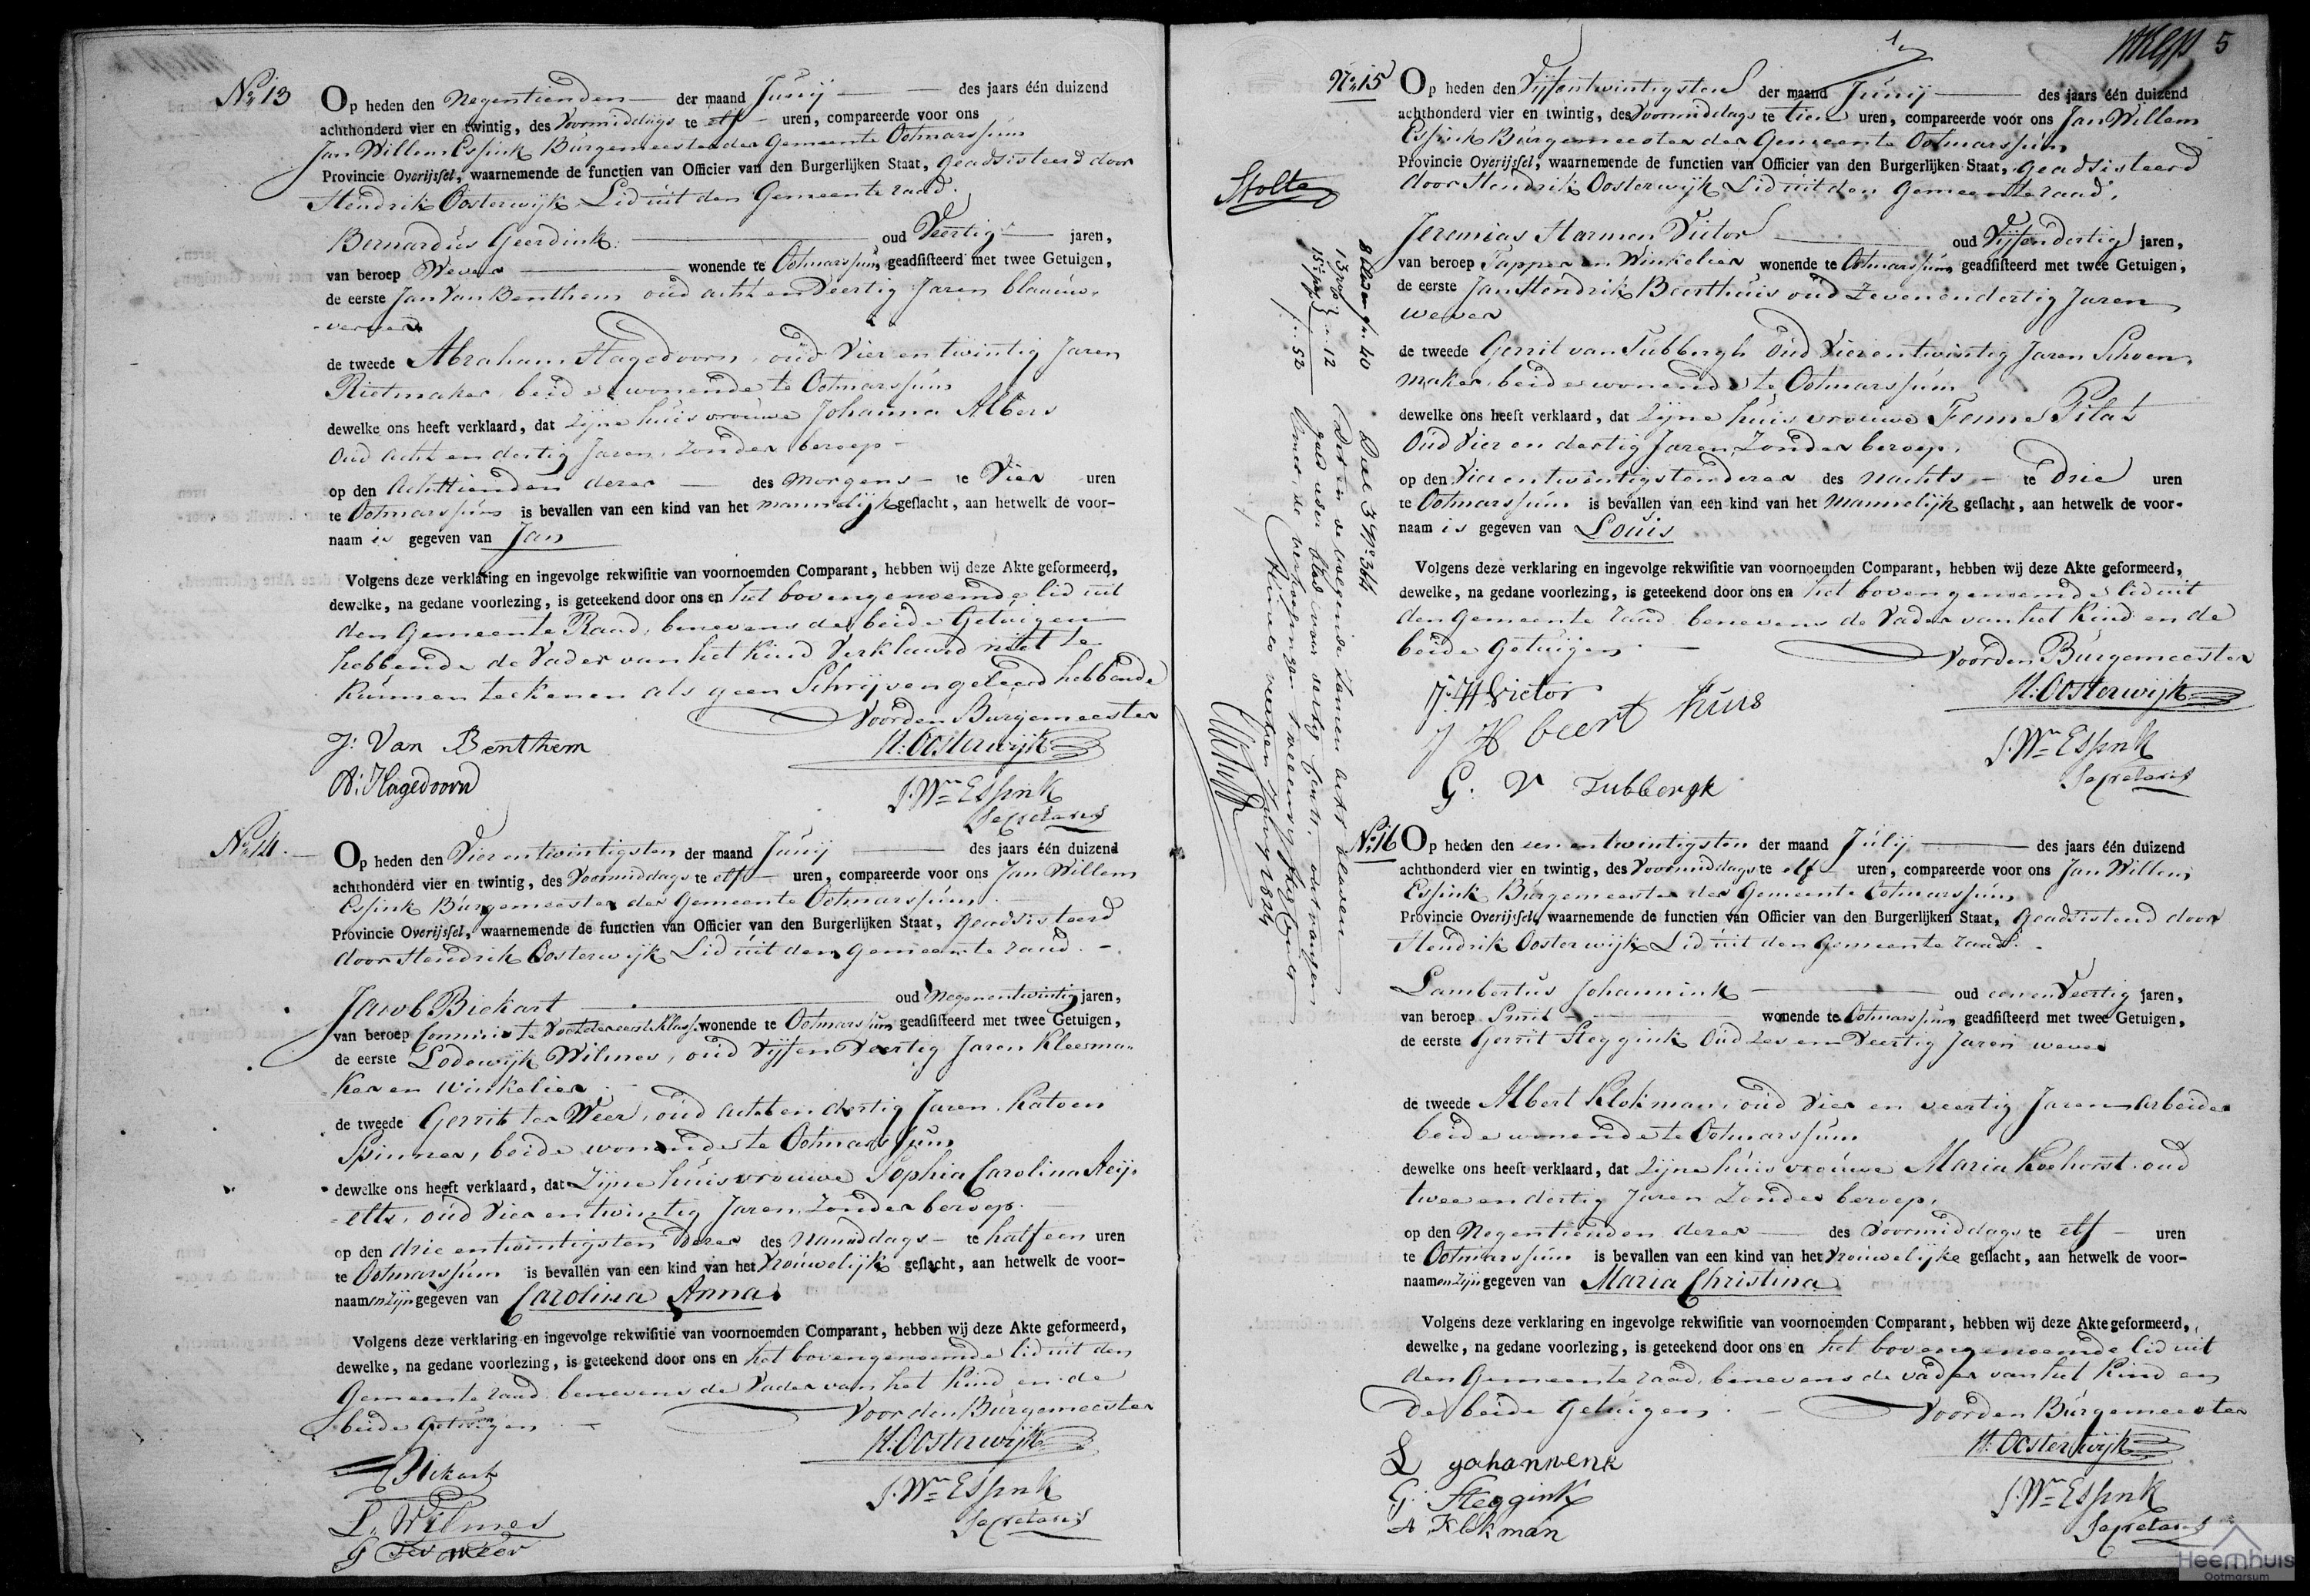 No 13
Op heden den Negentienden der maand Junij des jaars één duizend
achthonderd vier en twintig, des Voormiddags te elf uren, compareerde voor ons
Jan Willem Essink Burgemeester der Gemeente Ootmarssum
Provincie Overijssel, waarnemende de functien van Officier van den Burgerlijken Staat, geadsisteerd door
Hendrik Oosterwijk Lid uit den Gemeente raad.
Bernardus Geerdink oud Veertig jaren,
van beroep Wever wonende te Ootmarssum geadsisteerd met twee Getuigen,
de eerste Jan Van Benthem oud acht en Veertig Jaren blaauw-
verwer
de tweede Abraham Hagedoorn, oud Vier en twintig Jaren
Rietmaker, beide wonende te Ootmarssum
dewelke ons heeft verklaard, dat Zijne huisvrouwe Johanna Albers
Oud acht en dertig Jaren, Zonder beroep -
op den Achttienden dezer des morgens te Vier uren
te Ootmarssum is bevallen van een kind van het mannelijk geslacht, aan hetwelk de voor-
naam is gegeven van Jan
Volgens deze verklaring en ingevolge rekwisitie van voornoemden Comparant, hebben wij deze Akte geformeerd,
dewelke, na gedane voorlezing, is geteekend door ons en het bovengenoemde lid uit
den Gemeente Raad, benevens de beide Getuigen
hebbende de Vader van het Kind Verklaard niet te
kunnen teekenen als geen Schrijven geleerd hebbende
Voor den Burgemeester
J: Van Benthem
H: Oosterwijk
A: Hagedoorn
J. Wm Essink
Secretaris
No 14.
Op heden den Vier en twintigsten der maand Junij des jaars één duizend
achthonderd vier en twintig, des Voormiddags te elf uren, compareerde voor ons Jan Willem
Essink Burgemeester der Gemeente Ootmarssum
Provincie Overijssel, waarnemende de functien van Officier van den Burgerlijken Staat, geadsisteerd
door Hendrik Oosterwijk Lid uit den gemeente raad.
Jacob Bickart oud Negenentwintig jaren,
van beroep Commis te Voet der eerste Klasse wonende te Ootmarssum geadsisteerd met twee Getuigen,
de eerste Lodewijk Wilmes, oud Vijf en Veertig Jaren Kleerma-
ker en Winkelier
de tweede Gerrit ter Weer, oud acht en dertig Jaren, Katoen
Spinner, beide wonende te Ootmarssum
dewelke ons heeft verklaard, dat Zijne huisvrouwe Sophia Carolina
oud Vier en twintig Jaren, Zonder beroep.
op den drie en twintigsten dezer des namiddags te half een uren
te Ootmarssum is bevallen van een kind van het Vrouwelijk geslacht, aan hetwelk de voor-
naamen zijn gegeven van Carolina Anna
Volgens deze verklaring en ingevolge rekwisitie van voornoemden Comparant, hebben wij deze Akte geformeerd,
dewelke, na gedane voorlezing, is geteekend door ons en het bovengenoemde lid uit den
Gemeente raad, benevens de Vader van het Kind en de
beide Getuigen
Voor den Burgemeester
H: Oosterwijk
Bickart
J. Wm Essink
L. Wilmes
Secretaris
G Ter Weer
5
No 15
Op heden den Vijfentwintigsten der maand Junij des jaars één duizend
achthonderd vier en twintig, des Voormiddags te tien uren, compareerde voor ons Jan Willem
Essink Burgemeester der Gemeente Ootmarssum
Provincie Overijssel, waarnemende de functien van Officier van den Burgerlijken Staat, geadsisteerd
door Hendrik Oosterwijk Lid uit den gemeente raad.
Jeremias Harmen Victor oud Vijfendertig jaren,
van beroep Tapper en Winkelier wonende te Ootmarssum geadsisteerd met twee Getuigen,
de eerste Jan Hendrik Beerthuis oud Zevenendertig Jaren
wever
de tweede Gerrit van Tubbergh Oud Vierentwintig Jaren Schoen-
maker, beide wonende te Ootmarssum
dewelke ons heeft verklaard, dat Zijne huisvrouwe Fenne Pilat
Oud Vier en dertig Jaren Zonder beroep.
op den Vierentwintigsten dezer des nachts te drie uren
te Ootmarssum is bevallen van een kind van het Mannelijk geslacht, aan hetwelk de voor-
naam is gegeven van Louis
Volgens deze verklaring en ingevolge rekwisitie van voornoemden Comparant, hebben wij deze Akte geformeerd,
dewelke, na gedane voorlezing, is geteekend door ons en het bovengenoemde lid uit
den Gemeente raad benevens de Vader van het Kind en de
beide Getuigen
Voor den Burgemeester
J. H Victor
H: Oosterwijk
J H beert huis
J. Wm Essink
G. V Tubbergh
Secretaris
Stolte
40 Deel 3 No 364
13 12
52
1824
No 16
Op heden den een en twintigsten der maand Julij des jaars één duizend
achthonderd vier en twintig, des Voormiddags te elf uren, compareerde voor ons Jan Willem
Essink Burgemeester der Gemeente Ootmarssum
Provincie Overijssel, waarnemende de functien van Officier van den Burgerlijken Staat, geadsisteerd door
Hendrik Oosterwijk Lid uit den gemeente raad.
Lambertus Johannink oud een en Veertig jaren,
van beroep Smit wonende te Ootmarssum geadsisteerd met twee Getuigen,
de eerste Gerrit Steggink Oud Zes en Veertig Jaren wever
de tweede Albert Klokman, oud Vier en veertig Jaren Arbeider
beide wonende te Ootmarssum
dewelke ons heeft verklaard, dat Zijne huisvrouwe Maria Koehorst oud
twee en dertig Jaren Zonder beroep.
op den Negentienden dezer des Voormiddags te elf uren
te Ootmarssum is bevallen van een kind van het Vrouwelijke geslacht, aan hetwelk de voor-
naamen zijn gegeven van Maria Christina
Volgens deze verklaring en ingevolge rekwisitie van voornoemden Comparant, hebben wij deze Akte geformeerd,
dewelke, na gedane voorlezing, is geteekend door ons en het bovengenoemde lid uit
den Gemeente raad, benevens de vader van het Kind en
De beide Getuigen
Voor den Burgemeester
H: Oosterwijk
L Johannenk
G. Steggink
J. Wm Essink
A Klokman
Secretaris
Heemhuis
Ootmarsum